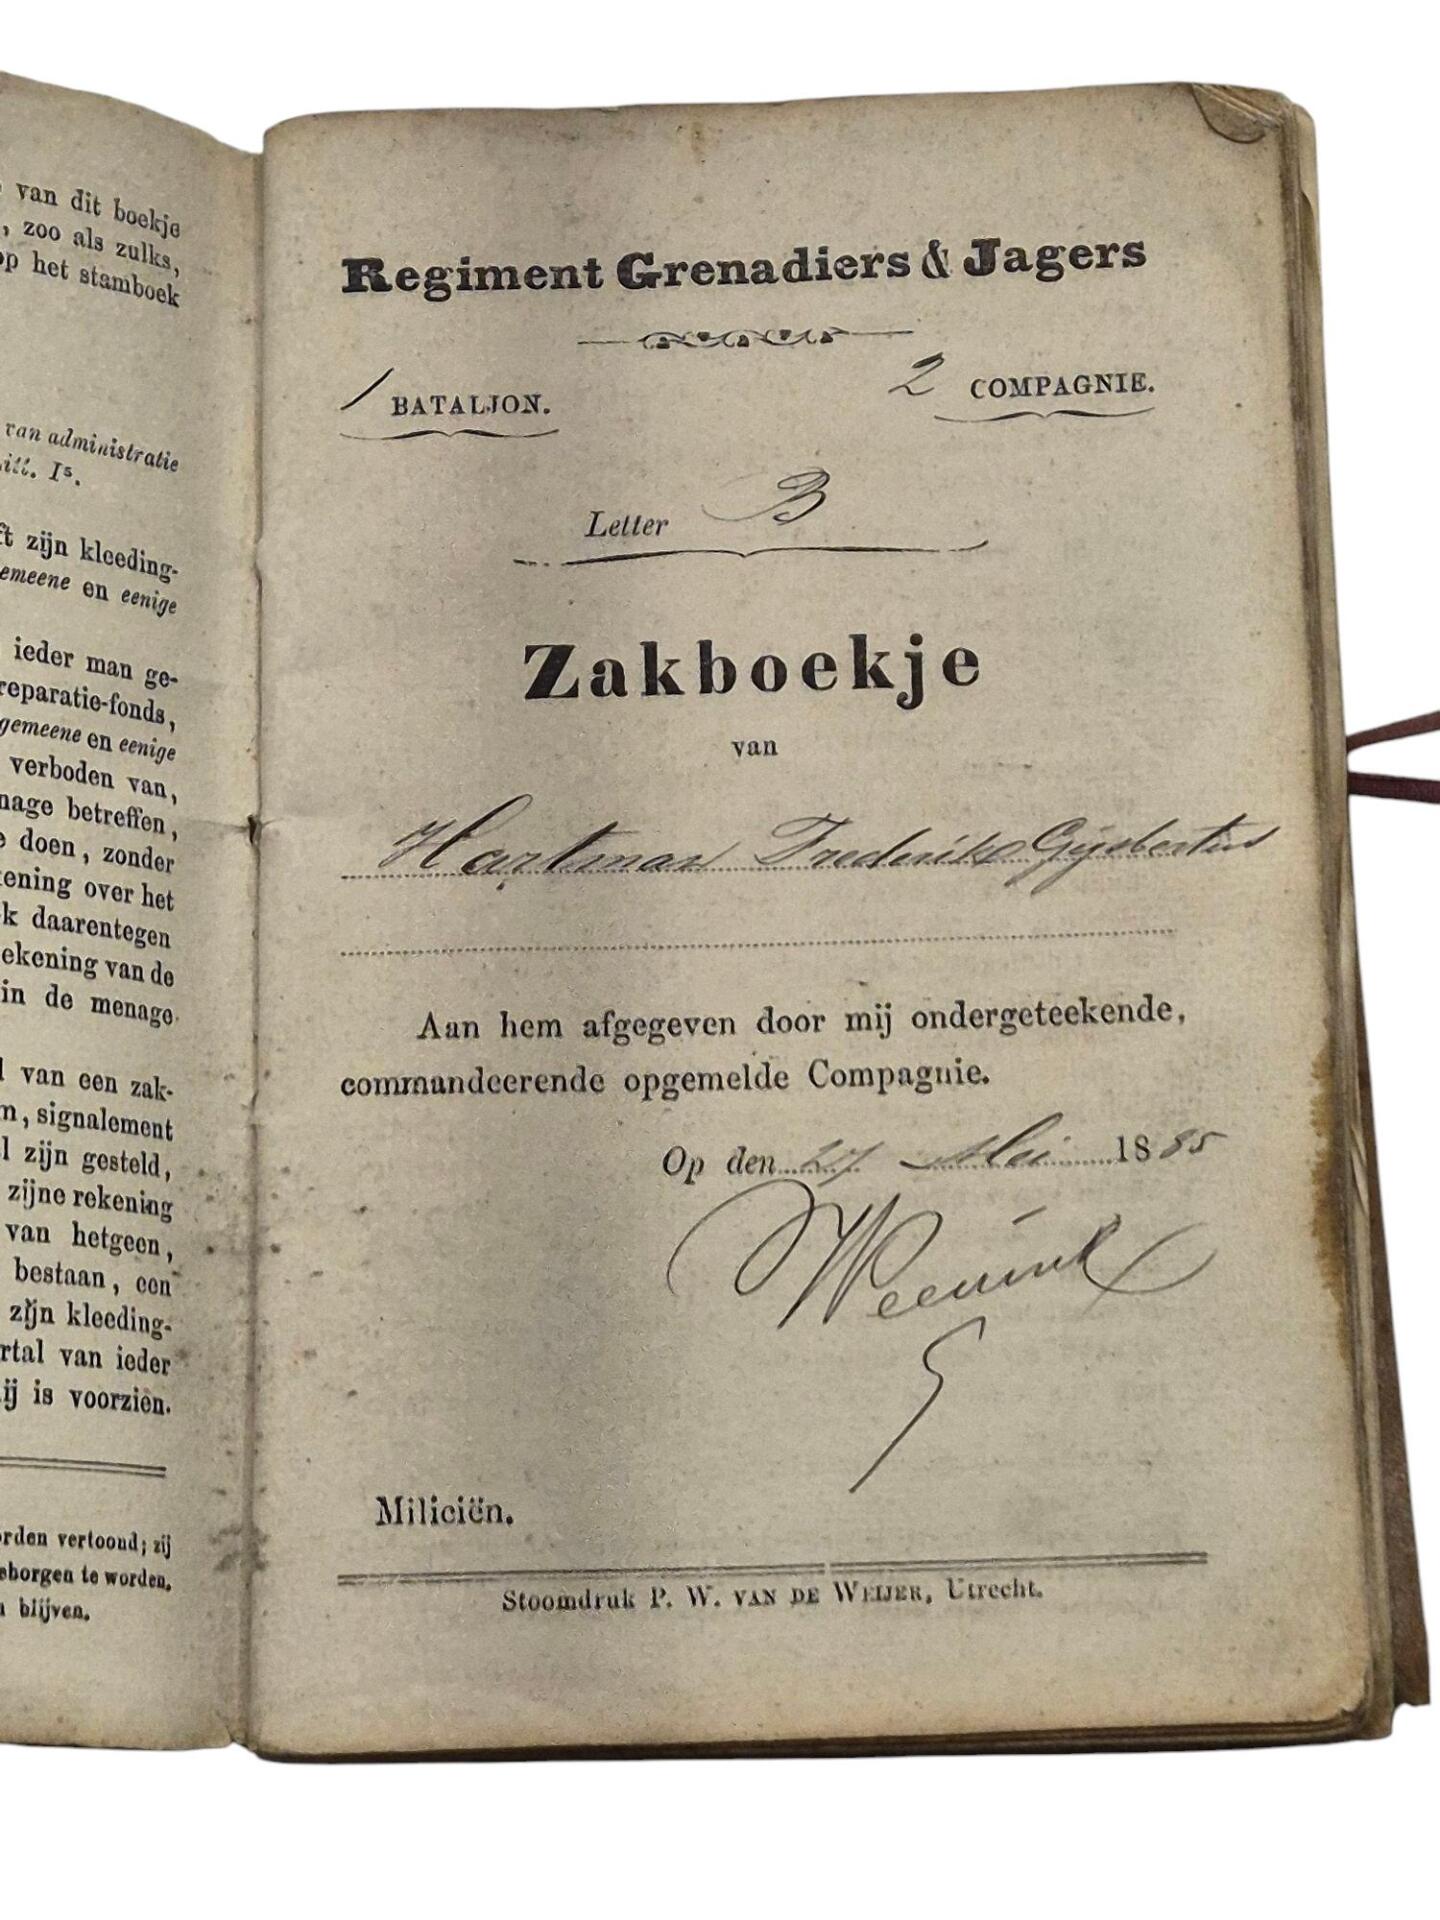 van dit boekje
, zoo als zulks,
op het stamboek
van administratie
Litt. Is.
ft zijn kleeding-
emeene en eenige
ieder man ge-
reparatie-fonds,
gemeene en eenige
verboden van,
nage betreffen,
e doen, zonder
kening over het
k daarentegen
ekening van de
in de menage
l van een zak-
m, signalement
l zijn gesteld,
zijne rekening
van hetgeen,
bestaan, een
zijn kleeding-
rtal van ieder
ij is voorzien.
orden vertoond; zij
eborgen te worden,
n blijven.
Regiment Grenadiers & Jagers
1 BATALJON. 2 COMPAGNIE.
Letter B
Zakboekje
van
Hartman Frederik Gijsbertus
Aan hem afgegeven door mij ondergeteekende,
commandeerende opgemelde Compagnie.
Op den 27 Mei 1885
Miliciën.
Stoomdruk P. W. VAN DE WEIJER, Utrecht.